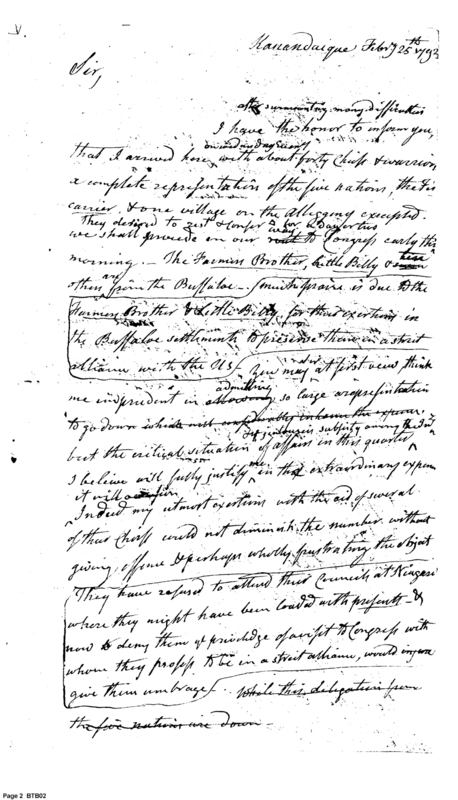 Kanandaique Febry 25th 1792
Sir,
after surmounting many difficulties
I have the honor to inform you,
on
that I arrived here, with about forty Chiefs & warriors
a complete representation of the five nations, the Fish
carrier, & one village on the Allegany excepted.
They desired to rest & confer for
we shall proceed on our way route to Congress early this
morning. The Farmers Brother, Little Billy &
others are from the Buffaloe. Much praise is due to the
Farmers Brother & Little Billy, for their exertions in
the Buffaloe settlements to preserve them in a strict
alliance with the U.S. You may at first view, think
admitting
me imprudent in allowing so large a representation
to go down which will
but the critical situation of affairs in this quarter
I believe will fully justify me in the extraordinary expence
it will occasion
Indeed my utmost exertions with the aid of several
of their Chiefs could not diminish the number without
giving offence & perhaps wholly frustrating the object
They have refused to attend their Councils at
where they might have been loaded with presents - &
now to deny them ye priviledge of a visit to Congress with
whom they profess to be in a strict alliance, would
give them umbrage. While this delegation from
the five nations are down
Page 2 BTB02